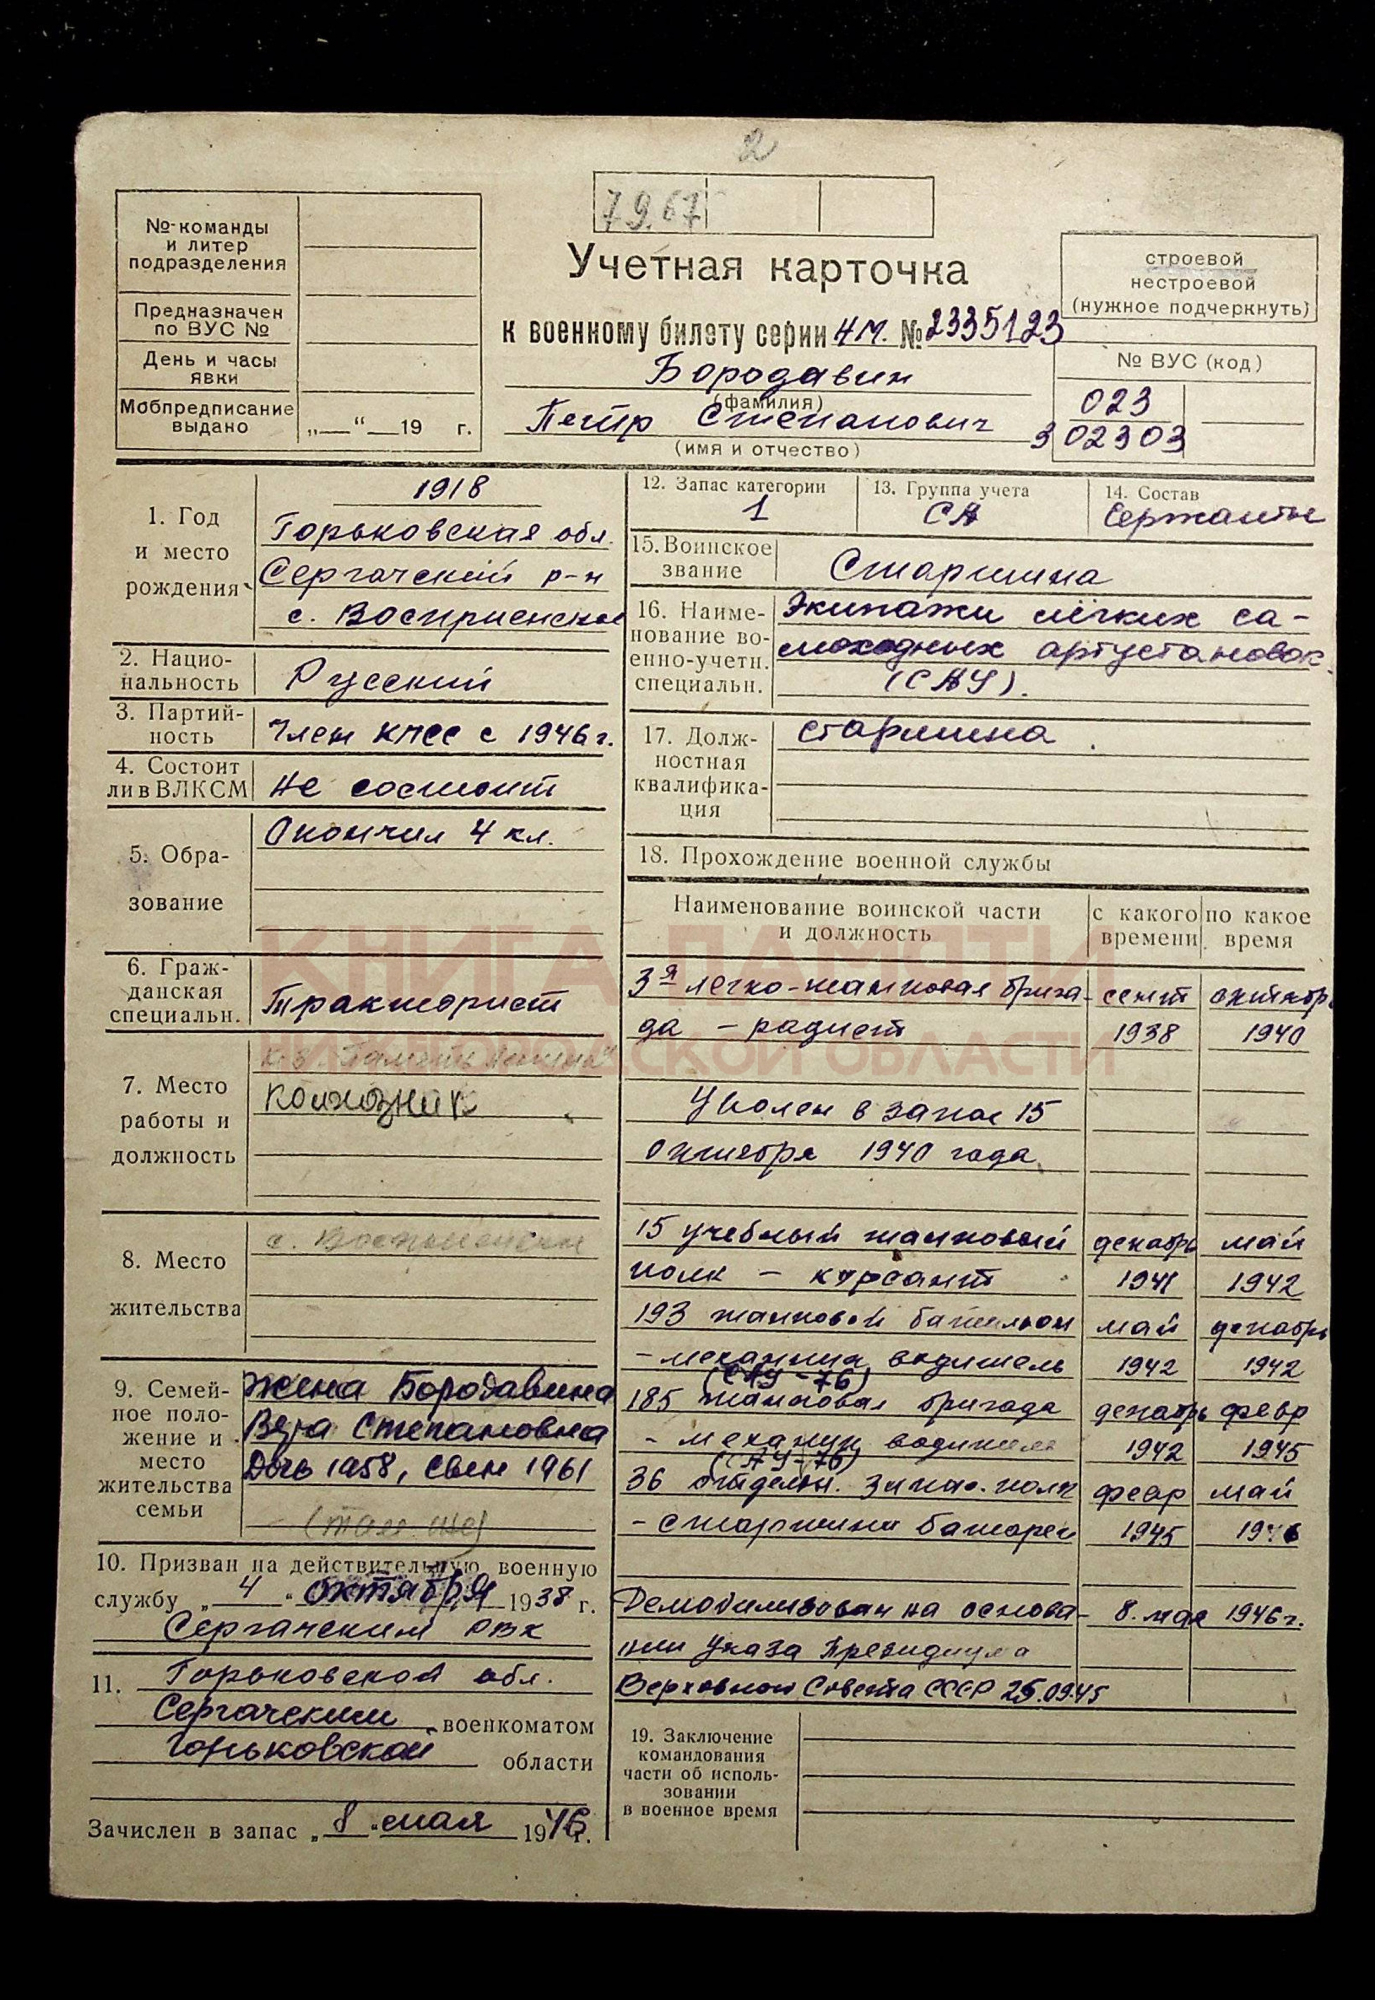 2
7 9.67
№-команды
и литер
подразделения
Предназначен
по ВУС №
День и часы
явки
Мобпредписание
выдано
„—“—19 г.
Учетная карточка
к военному билету серии НМ. № 2335123
Бородавин
(фамилия)
Петр Степанович
(имя и отчество)
строевой
нестроевой
(нужное подчеркнуть)
№ ВУС (код)
023
302303
1. Год
и место
рождения
1918
Горьковская обл.
Сергачский р-н
2. Нацио-
нальность
Русский
3. Партий-
ность
Член КПСС с 1946 г.
4. Состоит
ли в ВЛКСМ
не состоит
5. Обра-
зование
Окончил 4 кл.
6. Граж-
данская
специальн.
Тракторист
7. Место
работы и
должность
к-з "Память Ленина"
Колхозник
8. Место
жительства
9. Семей-
ное поло-
жение и
место
жительства
семьи
Жена Бородавина
Вера Степановна
Дочь 1958, Свен 1961
(там же)
10. Призван на действительную военную
службу „ 4 “ октября 1938 г.
Сергачским РВК
11. Горьковской обл.
Сергачским военкоматом
Горьковской области
Зачислен в запас „ 8 “ мая 1946 г.
12. Запас категории
1
13. Группа учета
СА
14. Состав
Сержанты
15. Воинское
звание
Старшина
16. Наиме-
нование во-
енно-учетн.
специальн.
Экипажи лёгких са-
моходных артустановок
(САУ).
17. Долж-
ностная
квалифика-
ция
старшина.
18. Прохождение военной службы
Наименование воинской части
и должность
с какого
времени
по какое
время
3я легко-танковая брига- сент октябрь
да - радист 1938 1940
Уволен в запас 15
октября 1940 года
15 учебный танковый декабрь май
полк - курсант 1941 1942
193 танковой батальон май декабрь
- механик водитель 1942 1942
(САУ-76)
185 танковая бригада декабрь февр
- механик водитель 1942 1945
(САУ-76)
36 отдельн. запас. полк февр май
- старшина батареи 1945 1946
Демобилизован на основа- 8. мая 1946 г.
нии Указа Президиума
Верховного Совета СССР 25.09.45
19. Заключение
командования
части об исполь-
зовании
в военное время
КНИГА ПАМЯТИ
НИЖЕГОРОДСКОЙ ОБЛАСТИ